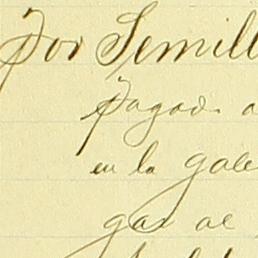 por Semill
pagado a
en la gale
gar al